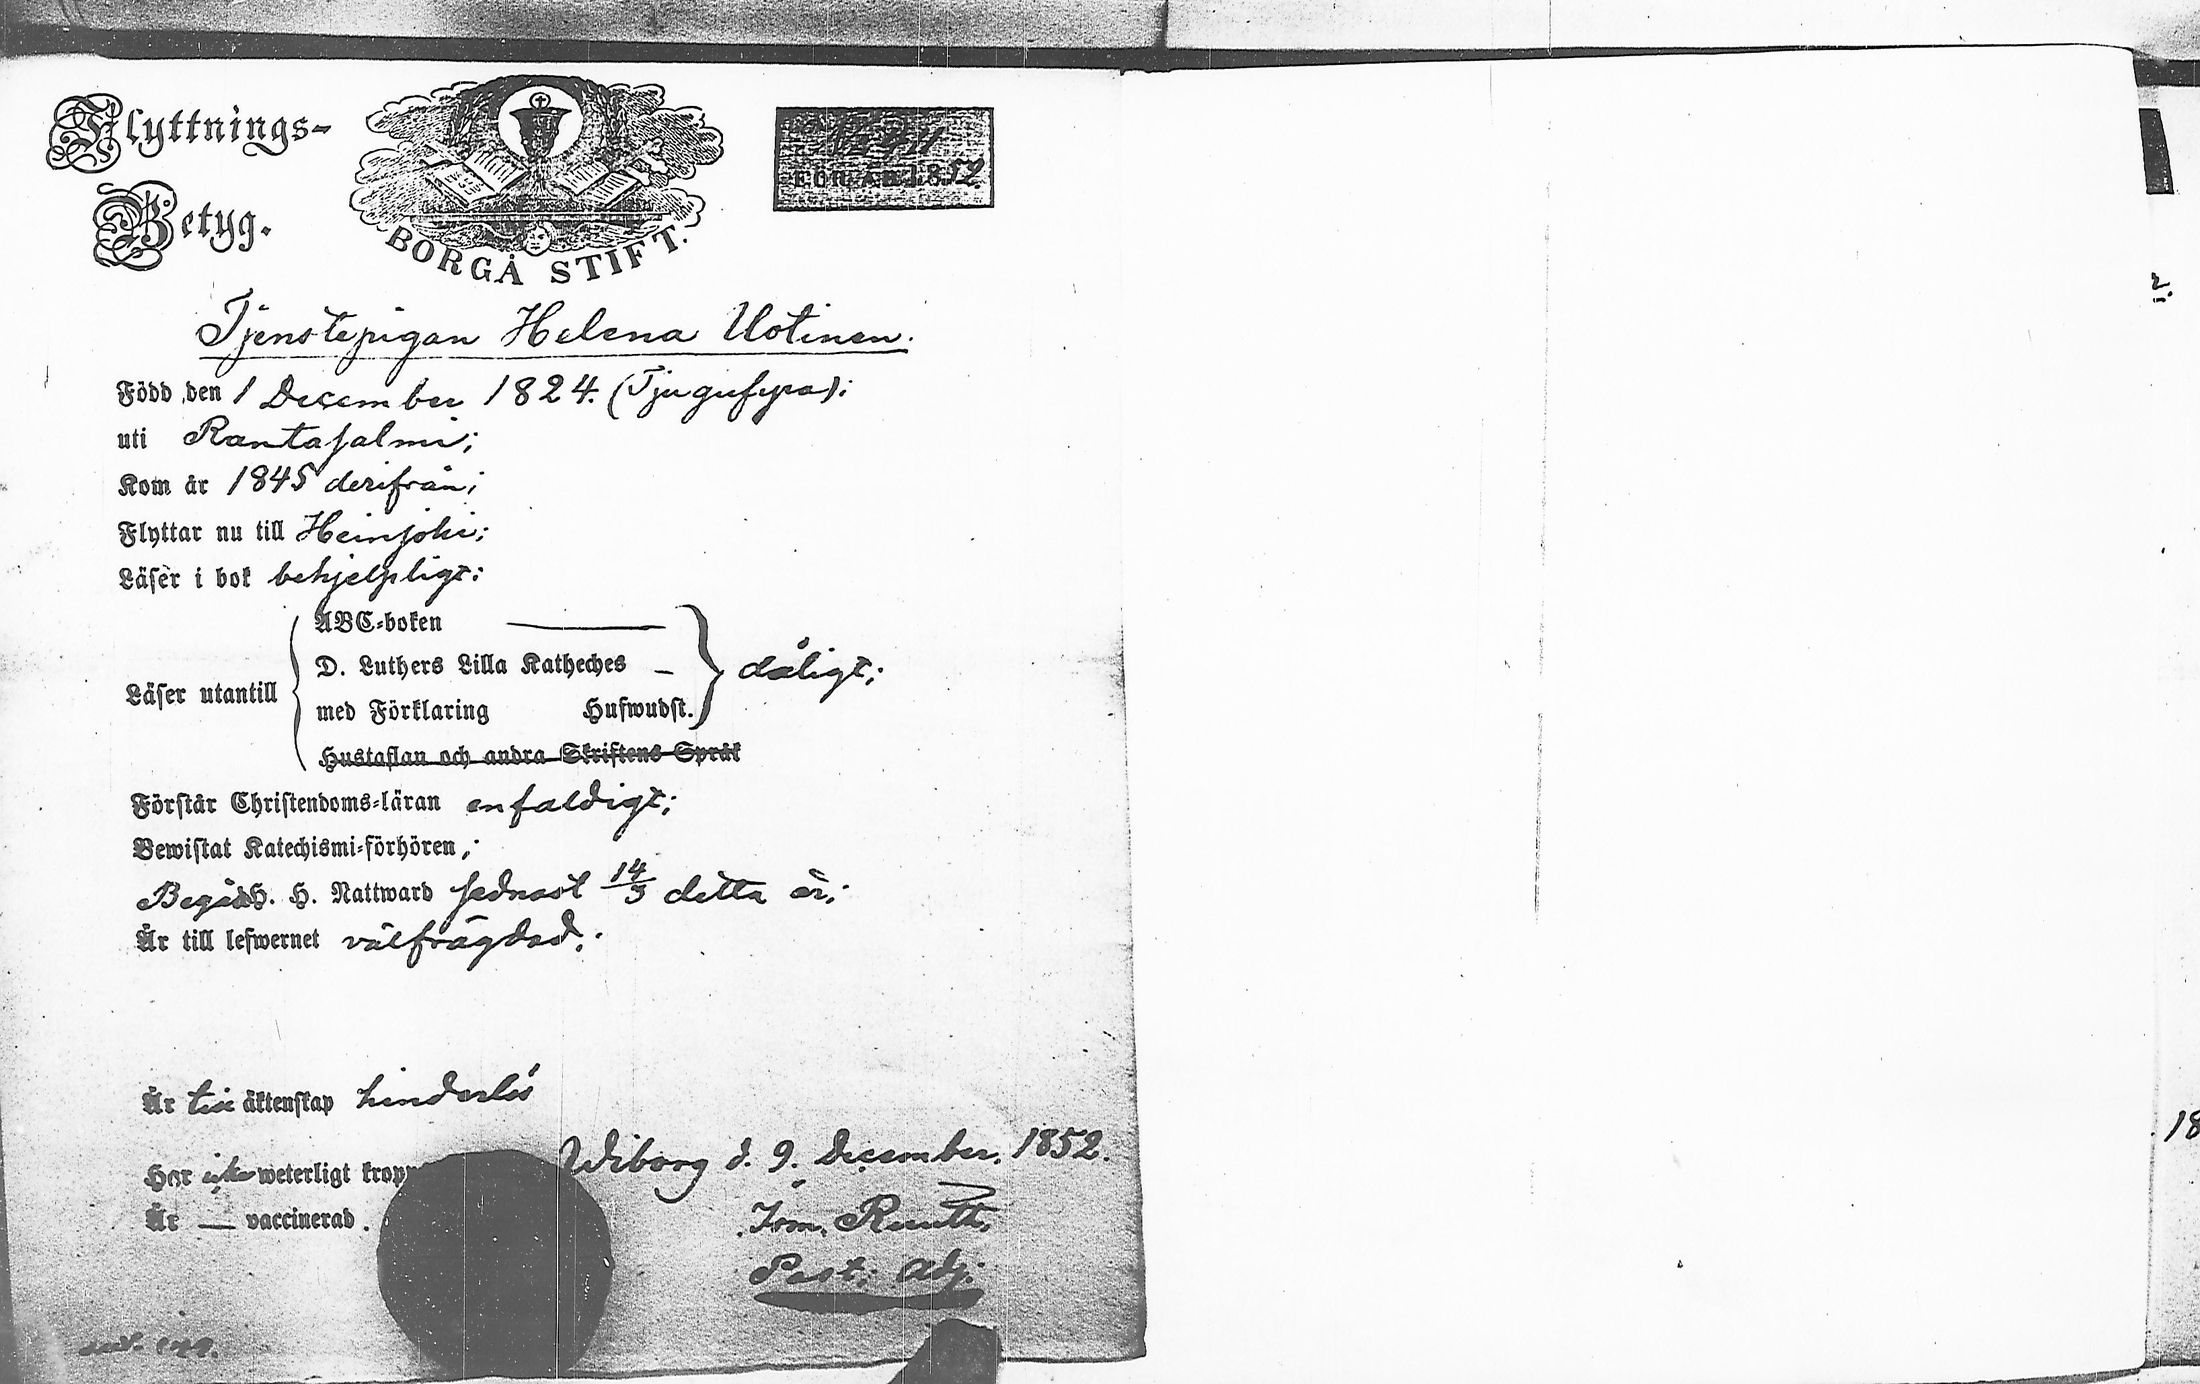 Flyttnings-
Betyg.
BORGÅ STIFT.
FÖR ÅR 1852.
Tjenstepigan Helena Uotinen.
Född den 1 December 1824. (Tjugufyra);
uti Rantasalmi;
Kom år 1845 derifrån;
Flyttar nu till Heinjoki;
Läser i bok behjelpligt;
Läser utantill
ABC-boken —
D. Luthers Lilla Katheches —
med Förklaring Hufwudst.
dåligt;
Hustaflan och andra Skriftens Språk
Förstår Christendoms-läran enfaldigt;
Bewistat Katechismi-förhören,
Begått H. H. Nattward sednast 14/3 detta år;
Är till lefwernet välfrägdad.
Är till äktenskap hinderlös
Har icke weterligt kropps
Wiborg d. 9. December. 1852.
Är — vaccinerad.
Past. Adj.
18